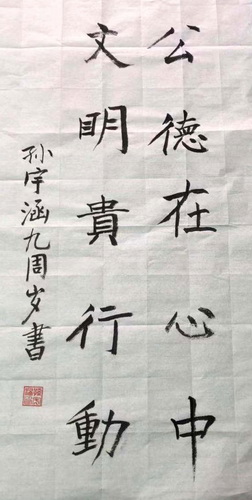 公德在心中
文明貴行動
孙宇涵九周岁書